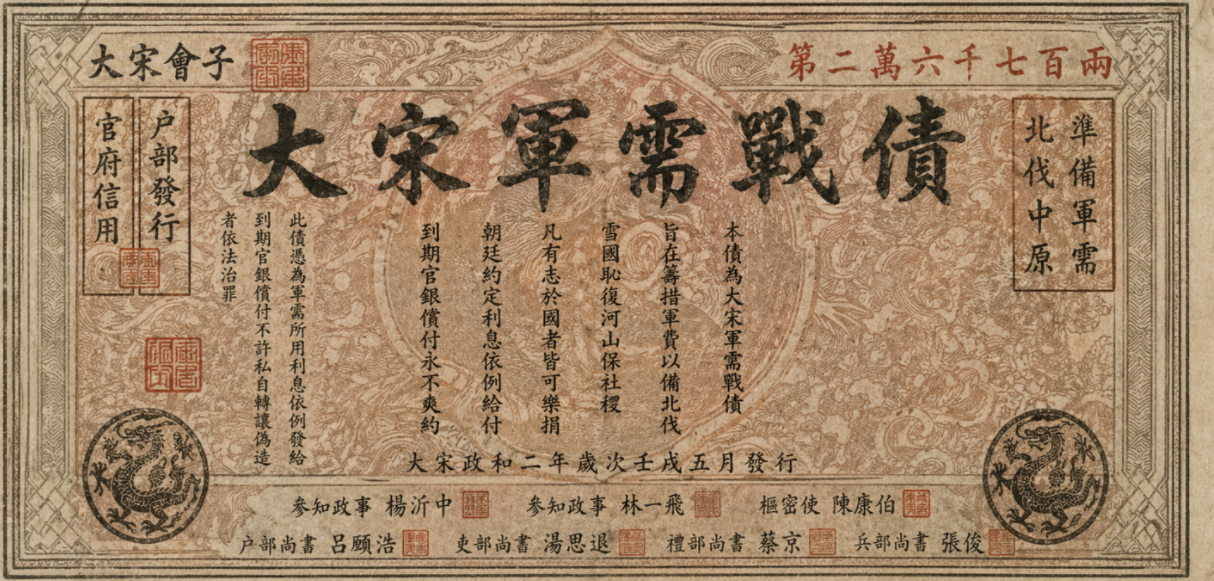 大宋會子
第二萬六千七百兩
大宋軍需戰債
準備軍需
北伐中原
戶部發行
官府信用
本債為大宋軍需戰債
旨在籌措軍費以備北伐
雪國恥復河山保社稷
凡有志於國者皆可樂捐
朝廷約定利息依例給付
到期官銀償付永不爽約
此債憑為軍需所用利息依例發給
到期官銀償付不許私自轉讓偽造
者依法治罪
大宋政和二年歲次壬戌五月發行
參知政事 楊沂中
參知政事 林一飛
樞密使 陳康伯
戶部尚書 呂頤浩
吏部尚書 湯思退
禮部尚書 蔡京
兵部尚書 張俊